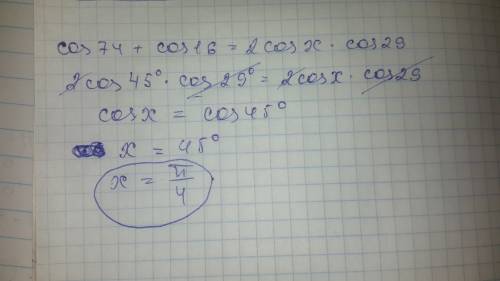 cos 74 + cos 16 = 2 cos x · cos 29
2 cos 45° · cos 29° = 2 cos x · cos 29
cos x = cos 45°
x = 45°
x = π/4